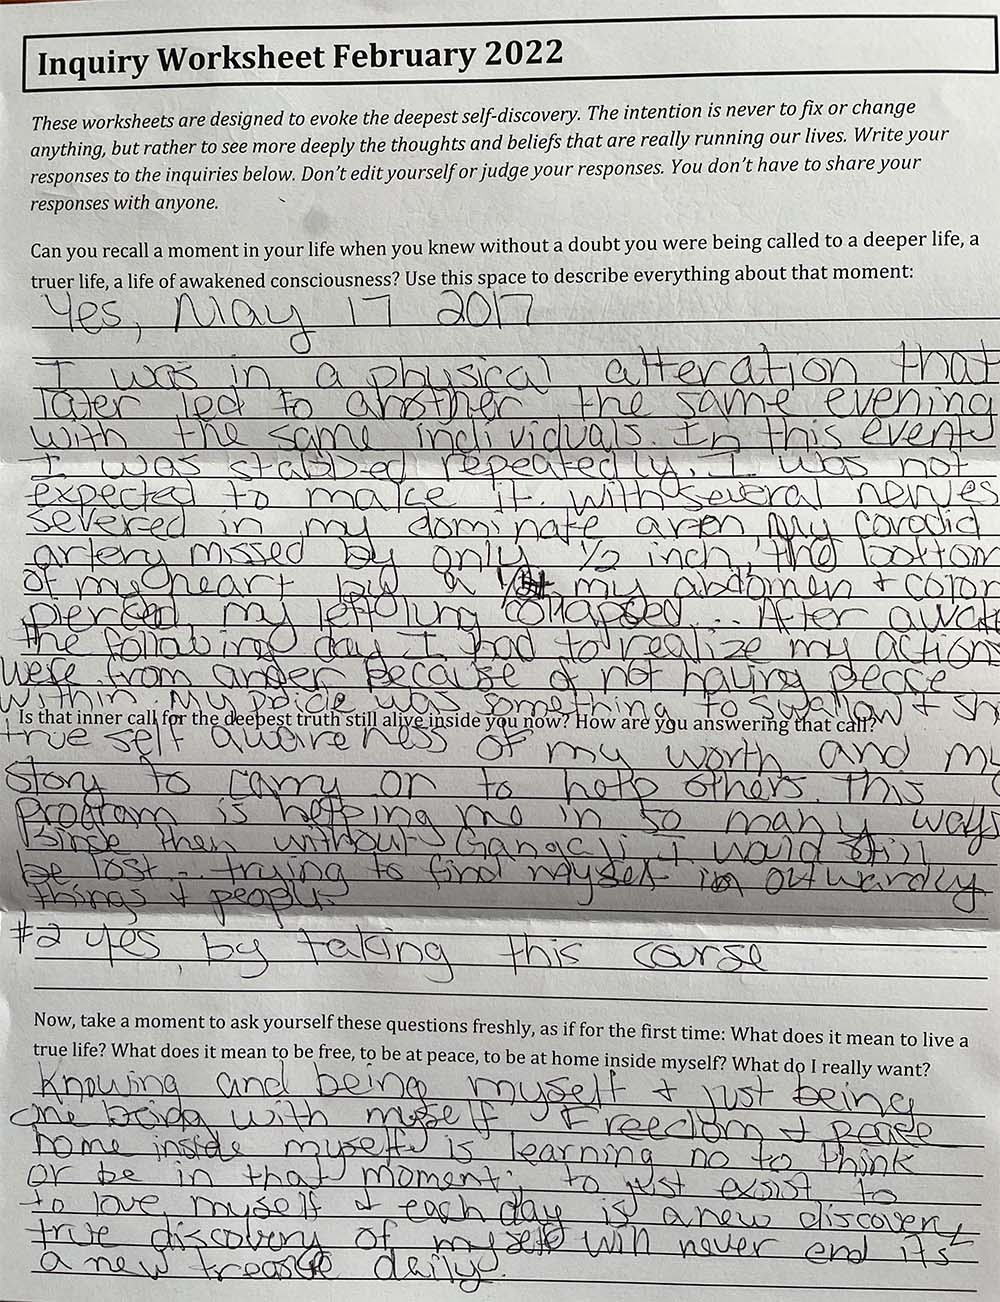 Inquiry Worksheet February 2022
These worksheets are designed to evoke the deepest self-discovery. The intention is never to fix or change
anything, but rather to see more deeply the thoughts and beliefs that are really running our lives. Write your
responses to the inquiries below. Don't edit yourself or judge your responses. You don't have to share your
responses with anyone.
Can you recall a moment in your life when you knew without a doubt you were being called to a deeper life, a
truer life, a life of awakened consciousness? Use this space to describe everything about that moment:
Yes, May 17 2017
I was in a physical alteration that
later led to another the same evening
with the same individuals. In this event
I was stabbed repeatedly. I was not
expected to make it. with several nerves
severed in my dominate arm My corodid
artery missed by only 1/2 inch, the bottom
of my heart by a my abdomen + colon
pierced, my left lung collapsed... After
the following day I had to realize my actions
were from anger because of not having peace
within. My pride was something to swallow +
Is that inner call for the deepest truth still alive inside you now? How are you answering that call?
true self awareness of my worth and my
story to carry on to help others. This
program is helping me in so many ways
since then without Gangaji I would still
be lost... trying to find myself in outwardly
things + people.
#2 yes, by taking this carse
Now, take a moment to ask yourself these questions freshly, as if for the first time: What does it mean to live a
true life? What does it mean to be free, to be at peace, to be at home inside myself? What do I really want?
Knowing and being myself + just being
one being with myself Freedom + peace
home inside myself is learning no to think
or be in that moment, to just exsist to
to love myself + each day is a new discovery
true discovery of myself will never end its
a new daily.